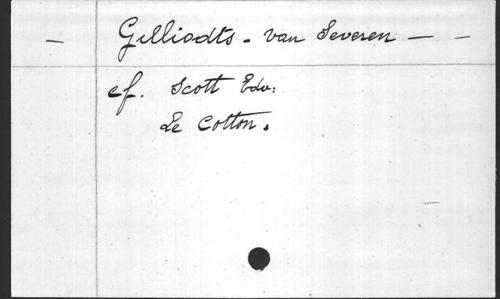 — Gilliodts - van Severen — —
cf. Scott Edw:
Le Cotton.